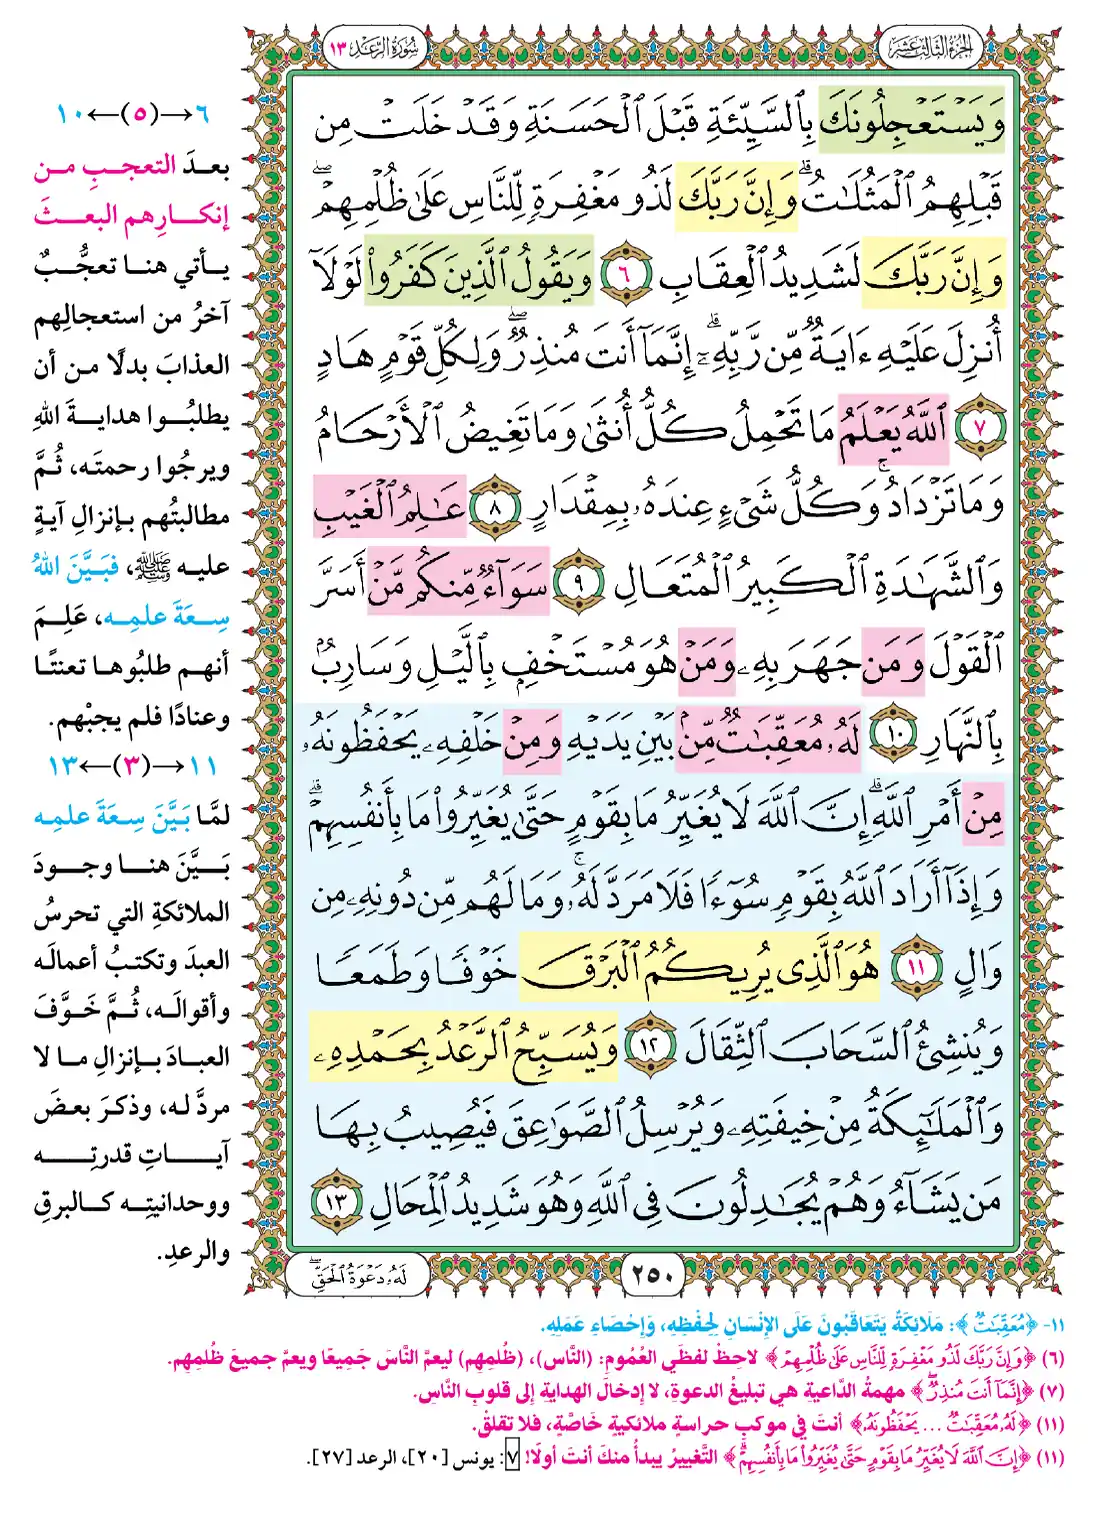 الجزء الثالث عشر
سورة الرعد ١٣
وَيَسْتَعْجِلُونَكَ بِالسَّيِّئَةِ قَبْلَ الْحَسَنَةِ وَقَدْ خَلَتْ مِن
قَبْلِهِمُ الْمَثُلَاتُ ۗ وَإِنَّ رَبَّكَ لَذُو مَغْفِرَةٍ لِّلنَّاسِ عَلَىٰ ظُلْمِهِمْ ۖ
وَإِنَّ رَبَّكَ لَشَدِيدُ الْعِقَابِ ٦ وَيَقُولُ الَّذِينَ كَفَرُوا لَوْلَا
أُنزِلَ عَلَيْهِ ءَايَةٌ مِّن رَّبِّهِ ۗ إِنَّمَا أَنتَ مُنذِرٌ ۖ وَلِكُلِّ قَوْمٍ هَادٍ
٧ اللَّهُ يَعْلَمُ مَا تَحْمِلُ كُلُّ أُنثَىٰ وَمَا تَغِيضُ الْأَرْحَامُ
وَمَا تَزْدَادُ ۖ وَكُلُّ شَىْءٍ عِندَهُ بِمِقْدَارٍ ٨ عَالِمُ الْغَيْبِ
وَالشَّهَادَةِ الْكَبِيرُ الْمُتَعَالِ ٩ سَوَاءٌ مِّنكُم مَّنْ أَسَرَّ
الْقَوْلَ وَمَن جَهَرَ بِهِ وَمَنْ هُوَ مُسْتَخْفٍ بِالَّيْلِ وَسَارِبٌ
بِالنَّهَارِ ١٠ لَهُ مُعَقِّبَاتٌ مِّن بَيْنِ يَدَيْهِ وَمِنْ خَلْفِهِ يَحْفَظُونَهُ
مِنْ أَمْرِ اللَّهِ ۗ إِنَّ اللَّهَ لَا يُغَيِّرُ مَا بِقَوْمٍ حَتَّىٰ يُغَيِّرُوا مَا بِأَنفُسِهِمْ ۗ
وَإِذَا أَرَادَ اللَّهُ بِقَوْمٍ سُوءًا فَلَا مَرَدَّ لَهُ ۚ وَمَا لَهُم مِّن دُونِهِ مِن
وَالٍ ١١ هُوَ الَّذِى يُرِيكُمُ الْبَرْقَ خَوْفًا وَطَمَعًا
وَيُنشِئُ السَّحَابَ الثِّقَالَ ١٢ وَيُسَبِّحُ الرَّعْدُ بِحَمْدِهِ
وَالْمَلَائِكَةُ مِنْ خِيفَتِهِ وَيُرْسِلُ الصَّوَاعِقَ فَيُصِيبُ بِهَا
مَن يَشَاءُ وَهُمْ يُجَادِلُونَ فِى اللَّهِ وَهُوَ شَدِيدُ الْمِحَالِ ١٣
٢٥٠
لَهُ دَعْوَةُ الْحَقِّ ۖ
٦→(٥)←١٠
بعدَ التعجبِ من
إنكارِهم البعثَ
يأتي هنا تعجُّبٌ
آخرُ من استعجالِهم
العذابَ بدلًا من أن
يطلبُوا هدايةَ اللهِ
ويرجُوا رحمتَه، ثُمَّ
مطالبتُهم بإنزالِ آيةٍ
عليه ﷺ، فبَيَّنَ اللهُ
سِعةَ علمِه، عَلِمَ
أنهم طلبُوها تعنتًا
وعنادًا فلم يجبْهم.
١١→(٣)←١٣
لمَّا بَيَّنَ سِعةَ علمِه
بَيَّنَ هنا وجودَ
الملائكةِ التي تحرسُ
العبدَ وتكتبُ أعمالَه
وأقوالَه، ثُمَّ خَوَّفَ
العبادَ بإنزالِ ما لا
مردَّ له، وذكرَ بعضَ
آياتِ قدرتِه
ووحدانيتِه كالبرقِ
والرعدِ.
١١- ﴿مُعَقِّبَاتٌ﴾: مَلَائِكَةٌ يَتَعَاقَبُونَ عَلَى الإِنْسَانِ لِحِفْظِهِ، وَإِحْصَاءِ عَمَلِهِ.
(٦) ﴿وَإِنَّ رَبَّكَ لَذُو مَغْفِرَةٍ لِّلنَّاسِ عَلَىٰ ظُلْمِهِمْ﴾ لاحِظْ لفظَي العُمُومِ: (النَّاس)، (ظُلمِهِم) ليعمَّ النَّاسَ جَمِيعًا ويعمَّ جميعَ ظُلمِهِم.
(٧) ﴿إِنَّمَا أَنتَ مُنذِرٌ ۖ﴾ مهمةُ الدَّاعيةِ هي تبليغُ الدعوةِ، لا إدخالَ الهدايةِ إلى قلوبِ النَّاسِ.
(١١) ﴿لَهُ مُعَقِّبَاتٌ ... يَحْفَظُونَهُ﴾ أنتَ في موكبِ حراسةٍ ملائكيةٍ خَاصَّةٍ، فلا تقلقْ.
(١١) ﴿إِنَّ اللَّهَ لَا يُغَيِّرُ مَا بِقَوْمٍ حَتَّىٰ يُغَيِّرُوا مَا بِأَنفُسِهِمْ ۗ﴾ التَّغييرُ يبدأُ منكَ أنتَ أولًا! ٧: يونس [٢٠]، الرعد [٢٧].